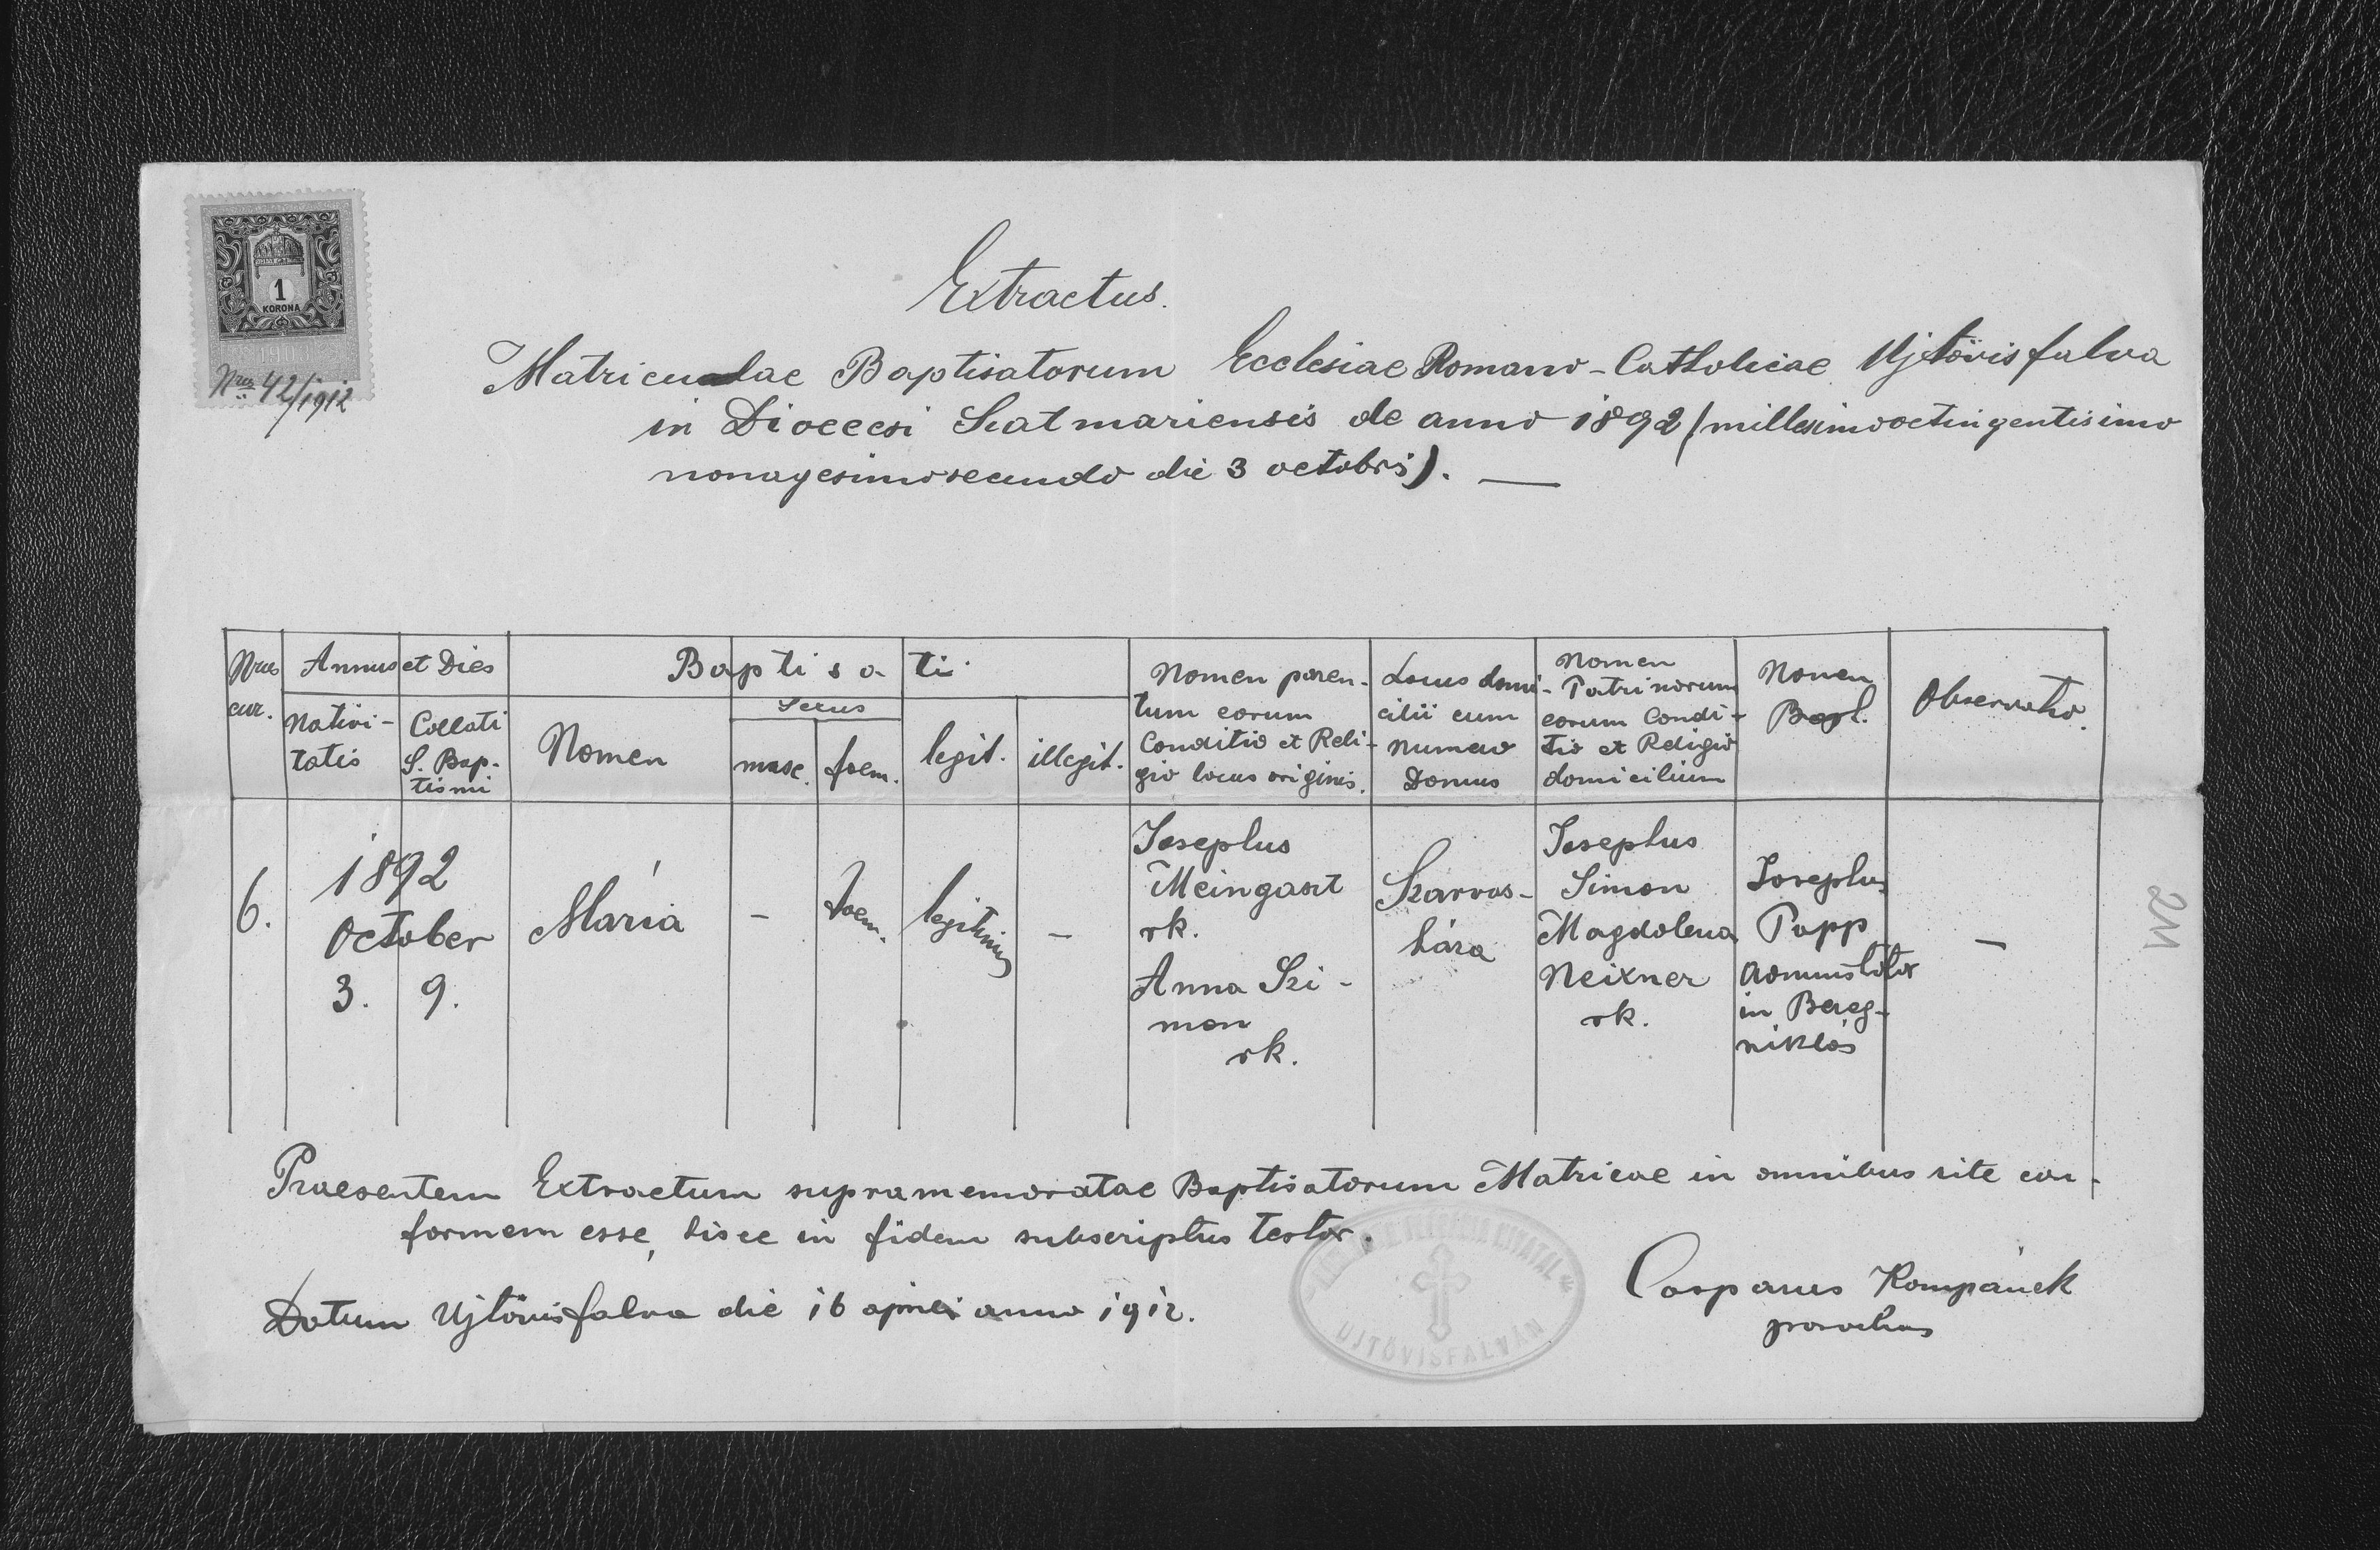 1
KORONA
Nrus 42/1912
Extractus.
Matriculae Baptisatorum Ecclesiae Romano-Catholicae Ujtövisfalva
in Dioecesi Szatmariensis de anno 1892 (millesimooctingentisimo
nonagesimosecundo die 3 octobris). —
Nrus cur.
Annus et Dies
Nativi-
tatis
Collati
S. Bap-
tismi
Baptisati
Nomen
Sexus
masc.
foem.
legit.
illegit.
Nomen paren-
tum eorum
Conditio et Reli-
gio locus originis.
Locus domi-
cilii cum
numero
Domus
Nomen
Patrinorum
eorum Condi-
tio et Religio
domicilium
Nomen
Bapt.
Observatio.
6.
1892
October
3. 9.
Mária
-
foem.
legitimus
-
Josephus
Meingast
rk.
Anna Szi-
mon
rk.
Szarvas-
háza
Josephus
Simon
Magdolena
Neixner
rk.
Josephus
Papp
administrator
in Bereg-
niklós
-
Praesentem Extractum supramemoratae Baptisatorum Matricae in omnibus rite con-
formem esse, hisce in fidem subscriptus testor.
Datum Ujtövisfalva die 16 aprilis anno 1912.
Casparus Kompánek
parochus
HIVATAL
UJTÖVISFALVÁN